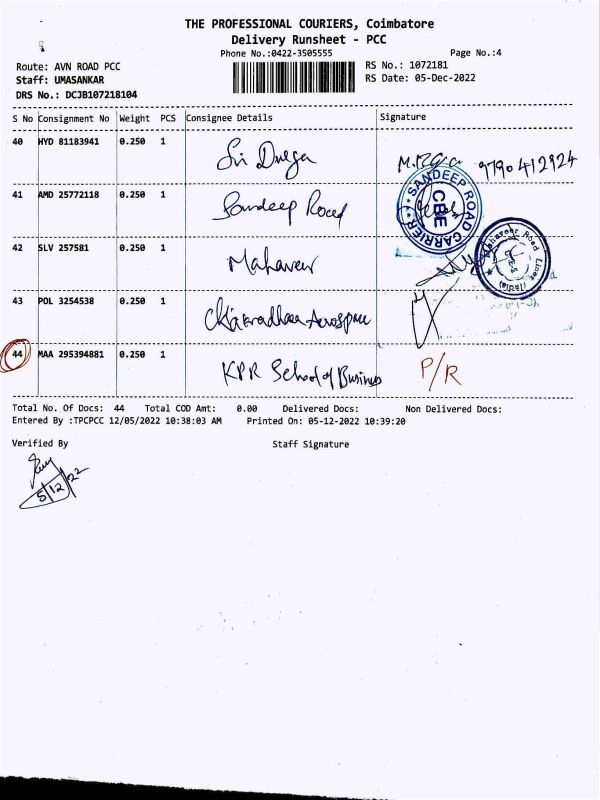 THE PROFESSIONAL COURIERS, Coimbatore
Delivery Runsheet - PCC
Phone No.:0422-3505555
Page No.:4
Route: AVN ROAD PCC
RS No.: 1072181
Staff: UMASANKAR
RS Date: 05-Dec-2022
DRS No.: DCJB107218104
S No Consignment No Weight PCS Consignee Details Signature
40 HYD 81183941 0.250 1 Sri Durga 9790412924
41 AMD 25772118 0.250 1 Sandeep Road
SANDEEP ROAD CARRIER
CBE
42 SLV 257581 0.250 1 Mahaveer
Mahaveer Road Lines (India)
43 POL 3254538 0.250 1 Chakradhaa Aerospace
44 MAA 295394881 0.250 1 KPR School of Business P/R
Total No. Of Docs: 44 Total COD Amt: 0.00 Delivered Docs: Non Delivered Docs:
Entered By :TPCPCC 12/05/2022 10:38:03 AM Printed On: 05-12-2022 10:39:20
Verified By Staff Signature
5/12/22